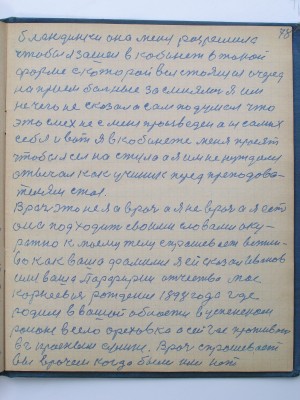 78
блондинки она меня разрешила
чтобы я зашел в кабинет в такой
форме с которой вся стоящия очред
на прием больные засмеялис я им
нечего не сказал а сам подумал что
это смех не с меня производен а и самих
себя и вот я в кабинете меня просят
чтобы сел на стул а я им не нуждаяси
отвечал как ученик перед преподова-
телям стоя.
Врач это не я врач а я не врач а я есть
она подходит своими словами аку-
ратно к моему телу спрашевает вежли-
во как ваша фамилия я ей сказал Иванов
имя ваша Парфирий отчество мое
Корнеевич рождения 1898 года где
родился в вашой области в успенском
районе в село ореховка а сейчас проживаю
в г красном сулине. Врач спрашевает
вы врачем когда были или нет